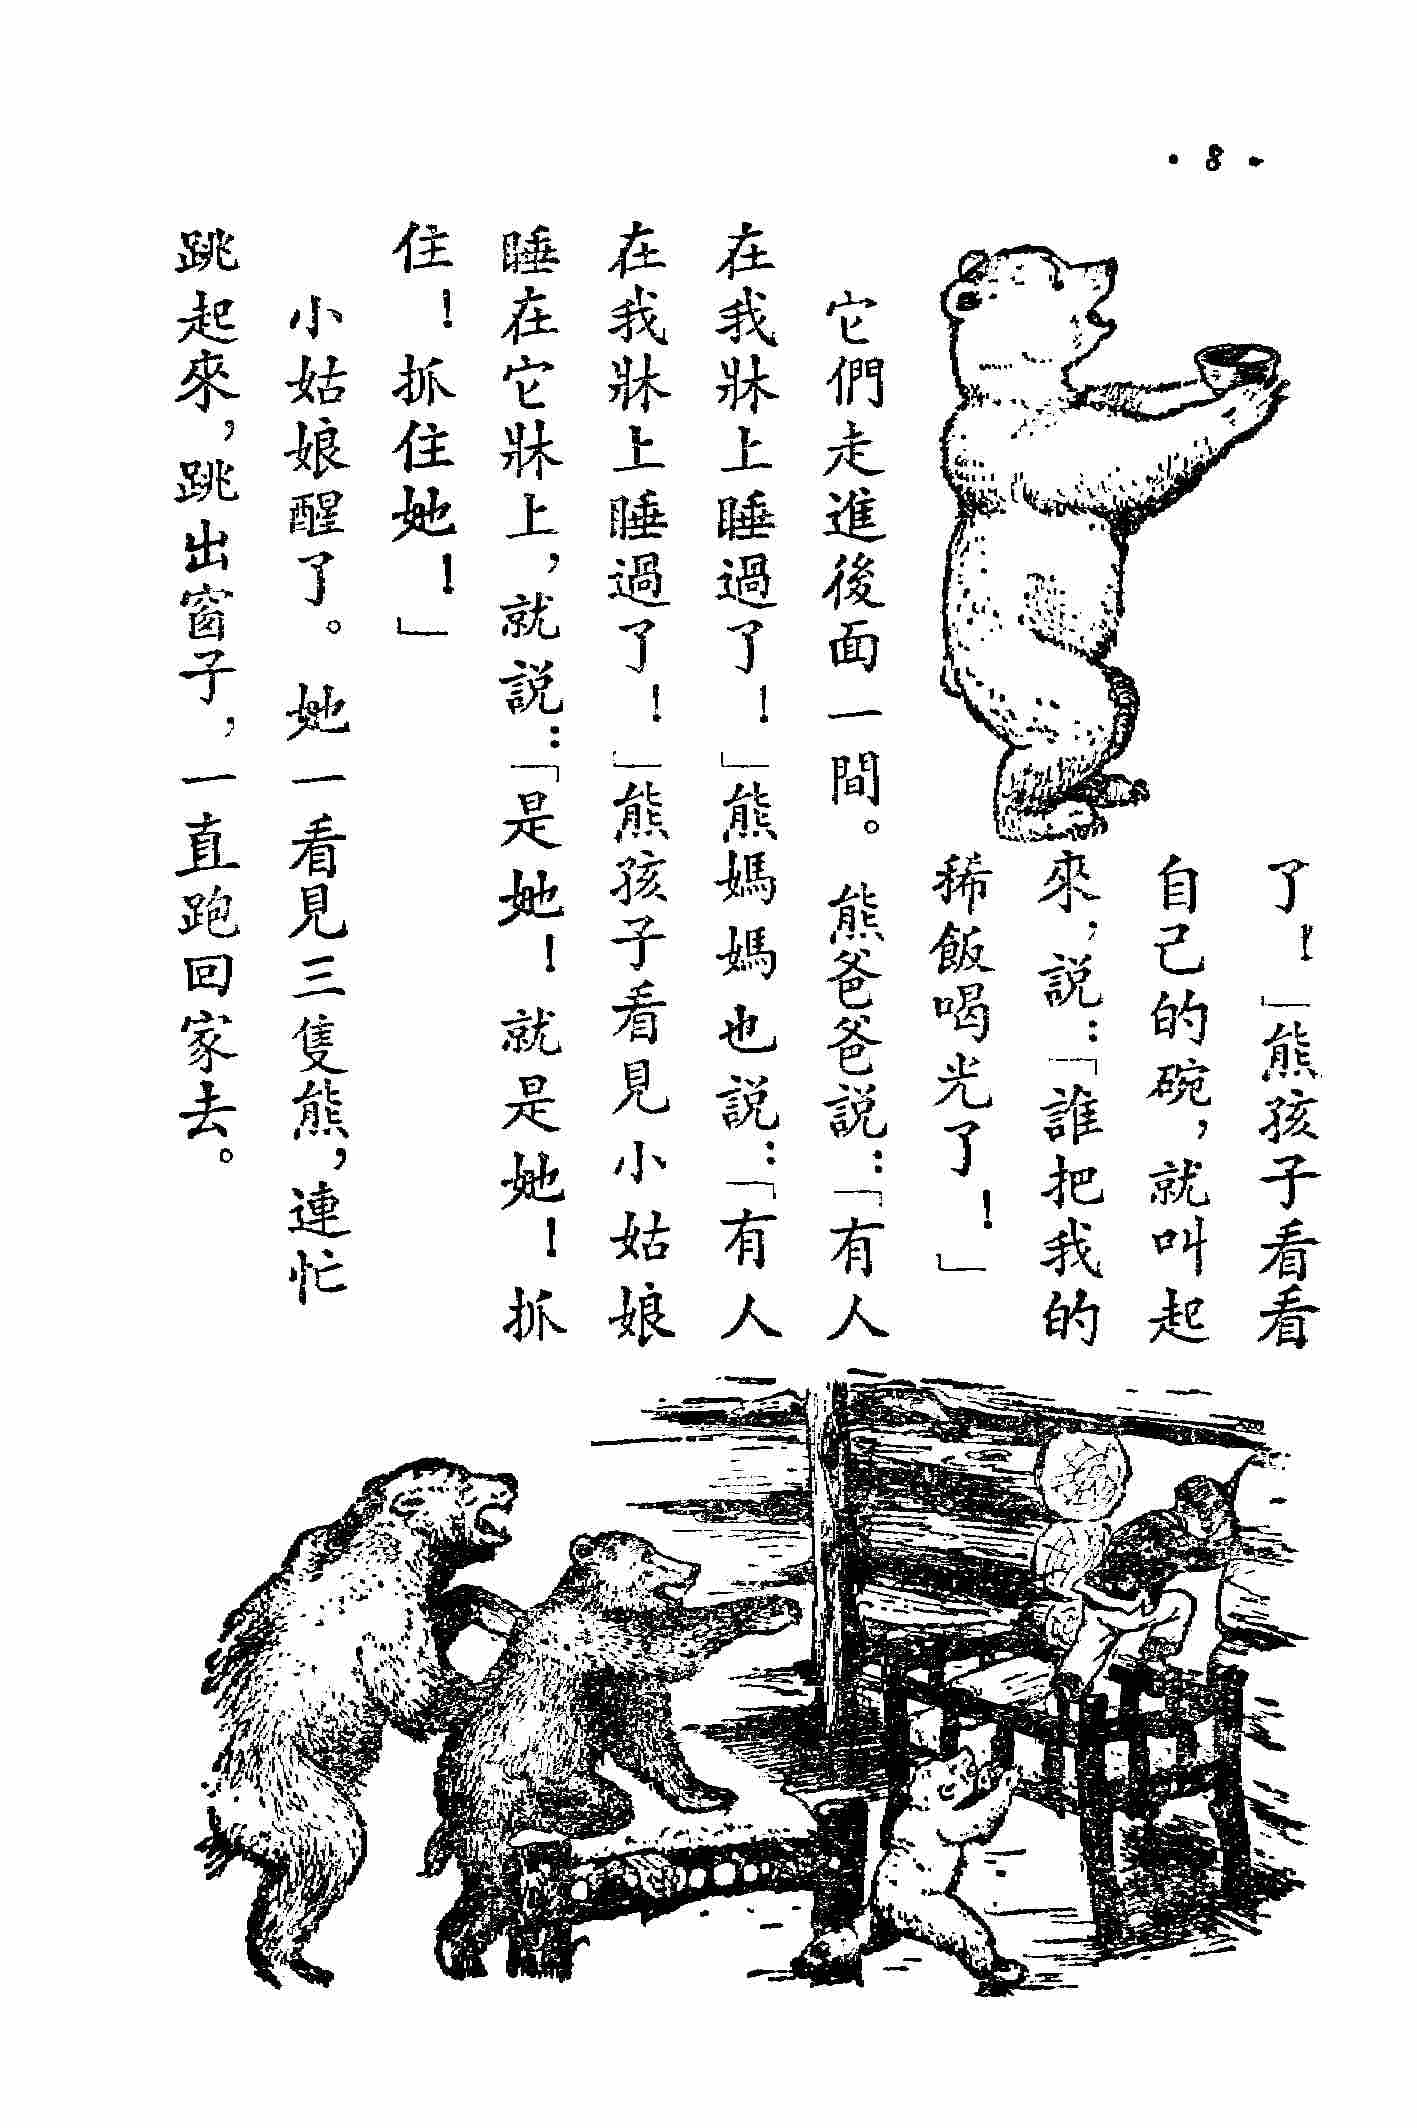 ·8·
了！」熊孩子看看
自己的碗，就叫起
來，說：「誰把我的
稀飯喝光了！」
它們走進後面一間。熊爸爸說：「有人
在我牀上睡過了！」熊媽媽也說：「有人
在我牀上睡過了！」熊孩子看見小姑娘
睡在它牀上，就說：「是她！就是她！抓
住！抓住她！」
小姑娘醒了。她一看見三隻熊，連忙
跳起來，跳出窗子，一直跑回家去。